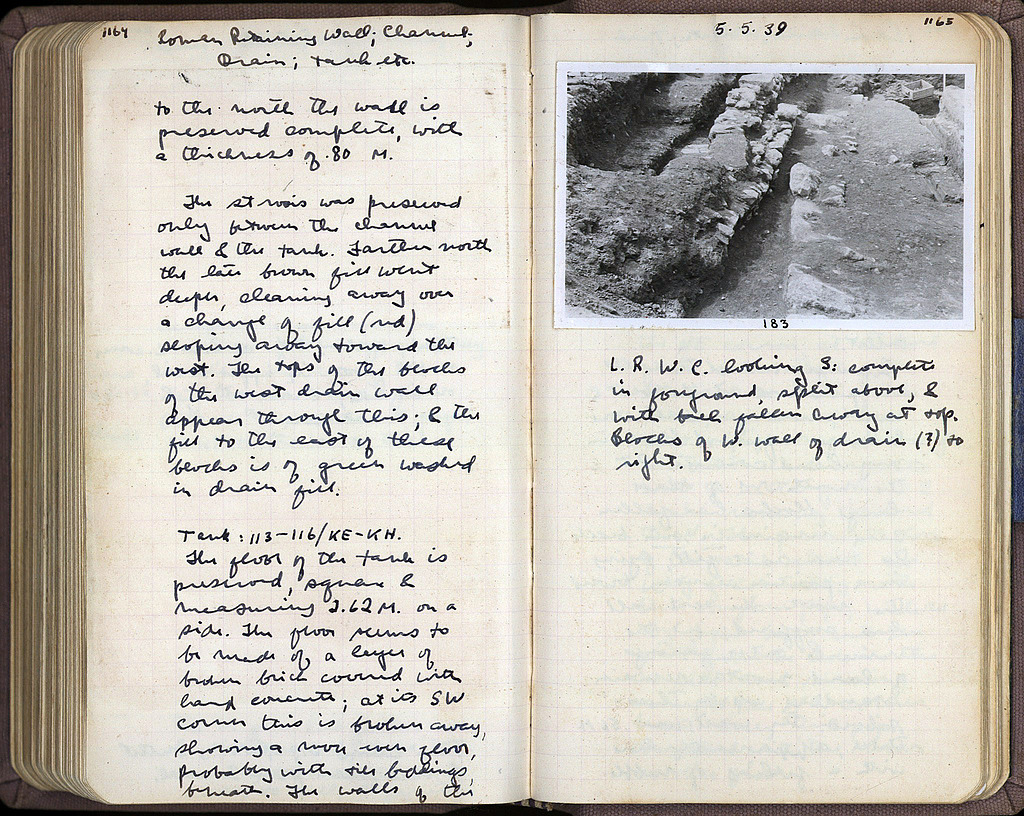 1164
Roman Retaining Wall; Channel;
Drain; Tank etc.
to the north the wall is
preserved complete, with
a thickness of .80 M.
The strosis was preserved
only between the channel
wall & the tank. Farther north
the late brown fill went
deeper, cleaning away over
a change of fill (red)
sloping away toward the
west. The tops of the blocks
of the west drain wall
appear through this; & the
fill to the east of these
blocks is of green washed
in drain fill.
Tank: 113-116/KE-KH.
The floor of the tank is
preserved, square &
measuring 2.62 M. on a
side. The floor seems to
be made of a layer of
broken brick covered with
hard concrete; at its SW
corner this is broken away,
showing a more even floor,
probably with tile beddings
beneath. The walls of this
5.5.39
1165
183
L. R. W. C. looking S: complete
in foreground, split above, &
with back fallen away at top.
Blocks of W. wall of drain (?) to
right.